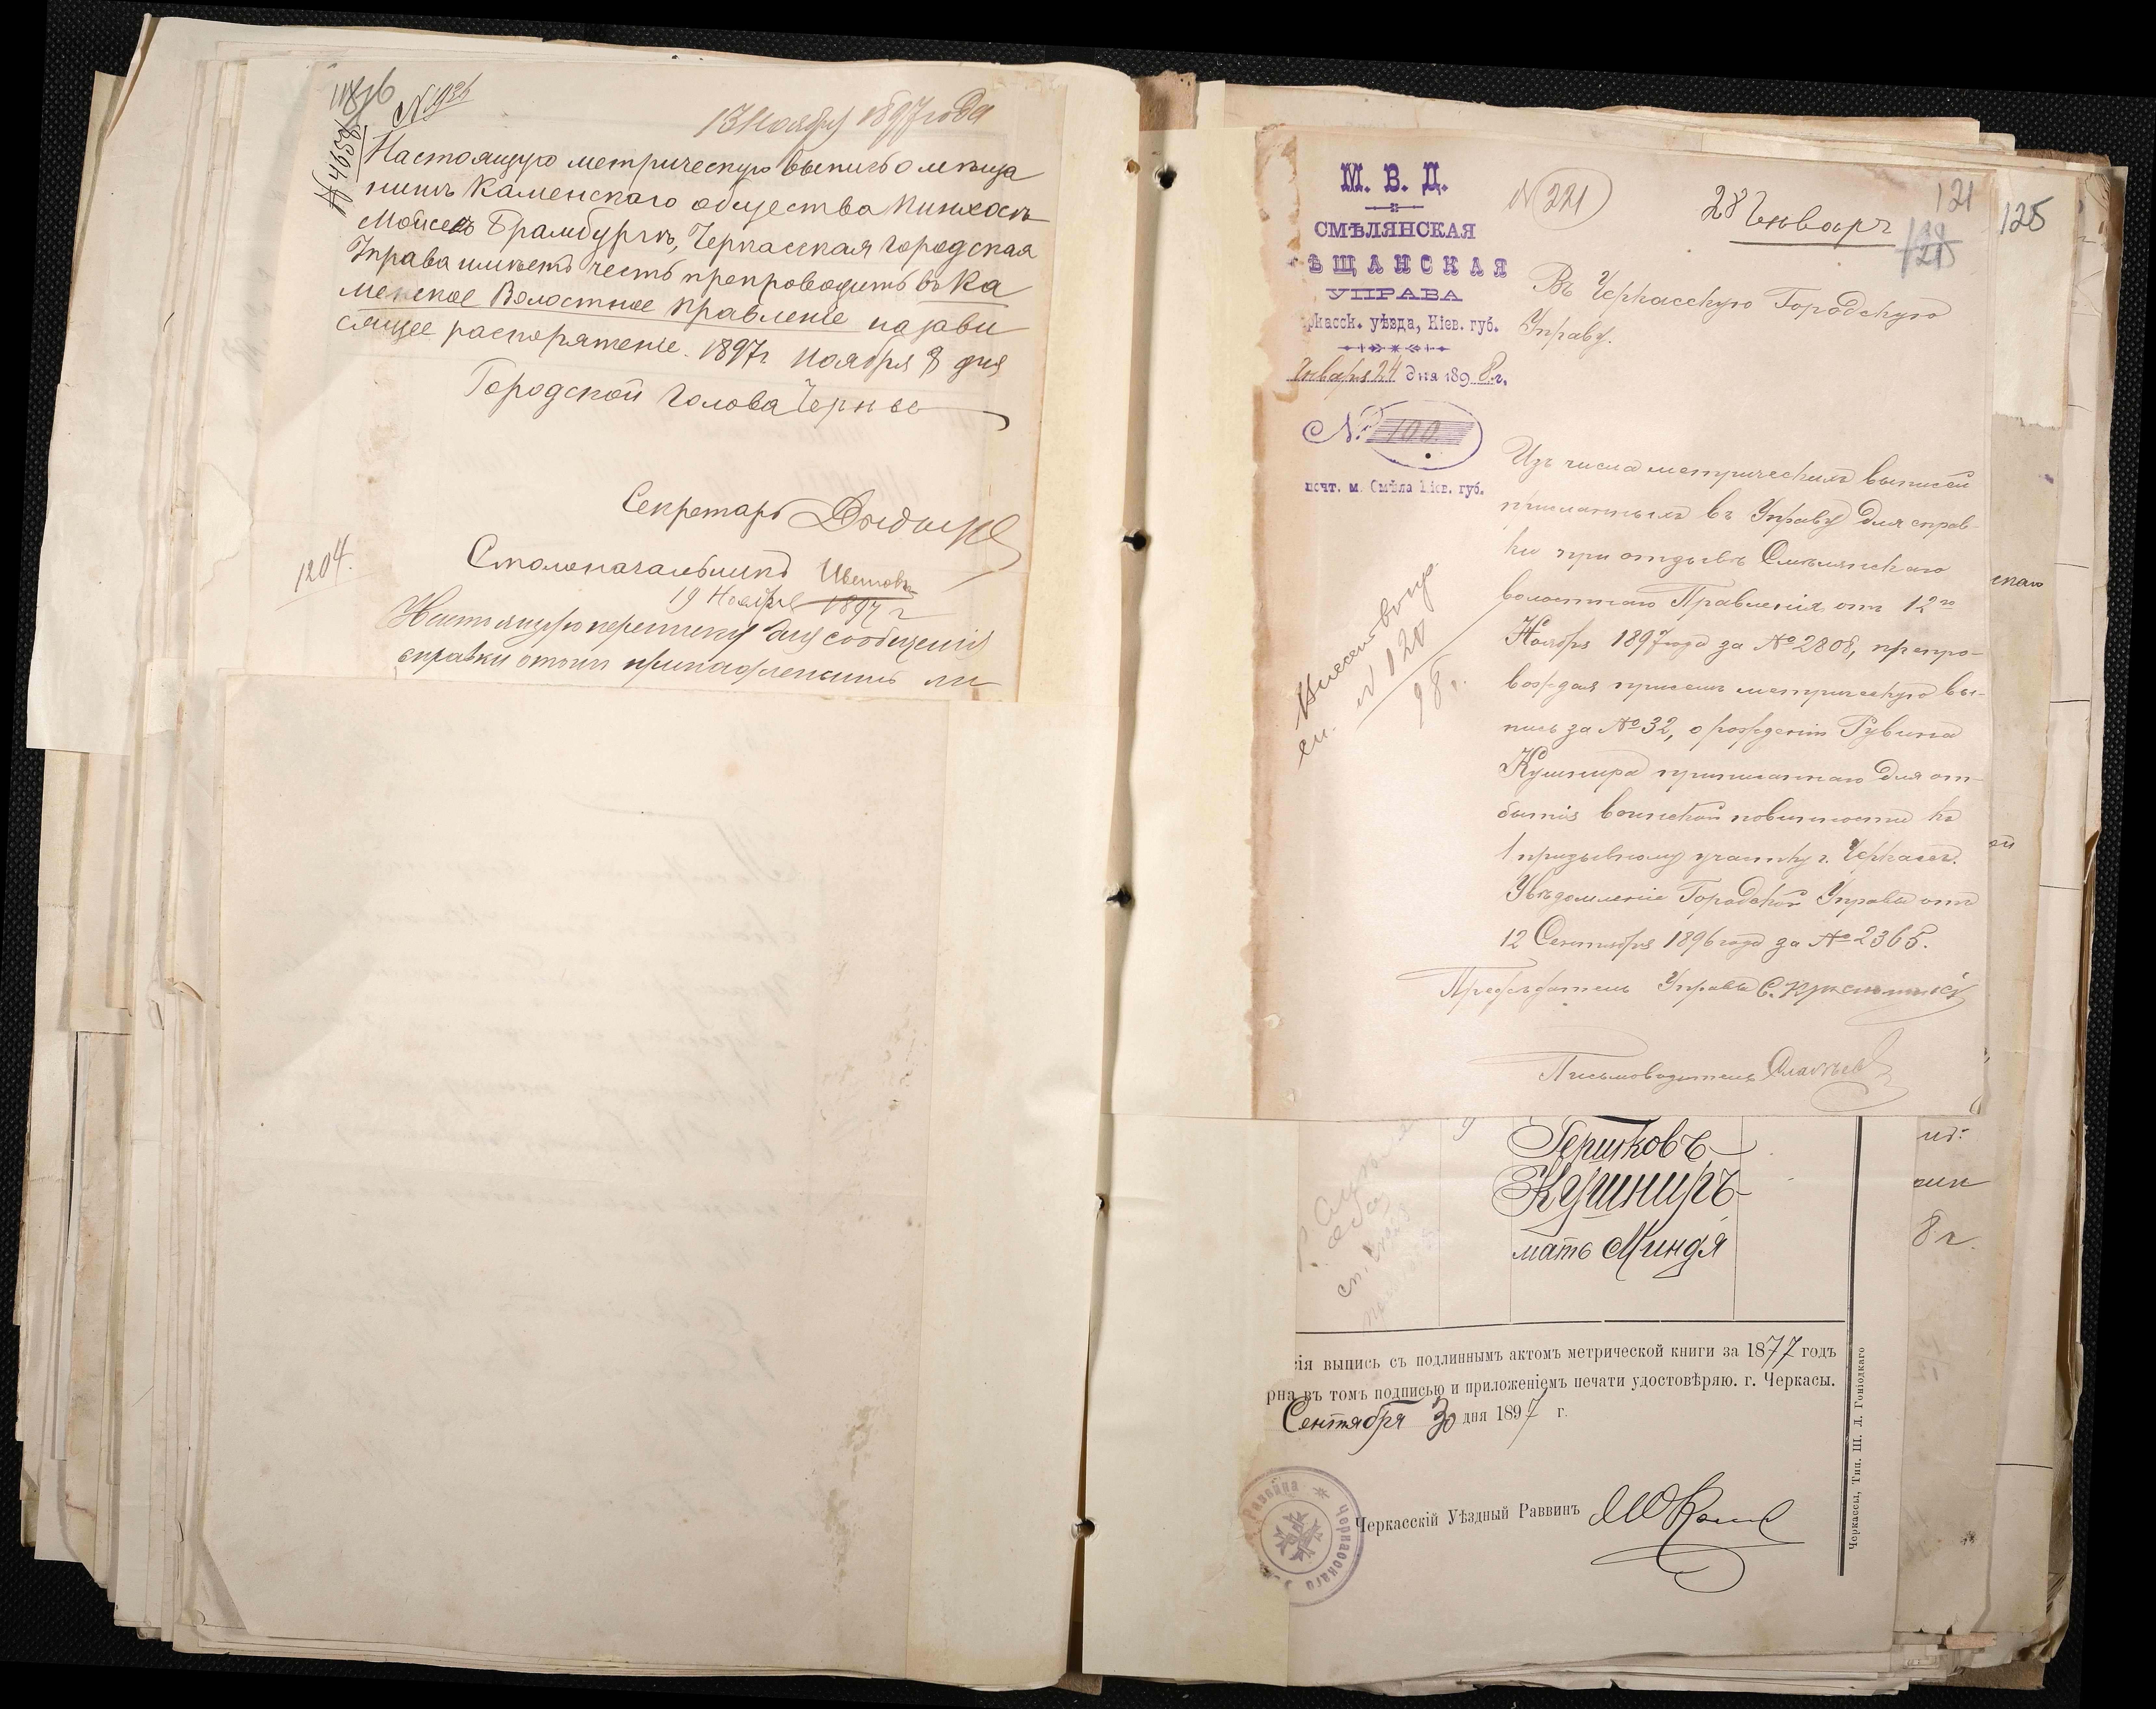 № 1926
13 Ноября 1897 года
№ 4658
Настоящую метрическую выпись о мѣща
нинѣ Каменскаго общества Пинхосѣ
Мойсеевѣ Брамбургѣ, Черкасская Городская
Управа имѣетъ честь препроводить въ Ка
менское Волостное Правленіе на зави
сящее распоряженіе. 1897 г Ноября 8 дня
Городской Голова Черн
Секретарь
Столоначальникъ Цвѣтковъ
1204.
19 Ноября 1897 г
Настоящую переписку для сообщенія
справки о томъ принадлежитъ ли
М. В. Д.
СМѢЛЯНСКАЯ
ѢЩАНСКАЯ
УПРАВА
ркасск. уѣзда, Кіев. губ.
Января 24 дня 1898 г.
№ 100
почт. м. Смѣла Кіев. губ.
№ 221
28 Января
121
125
Въ Черкасскую Городскую
Управу.
Изъ числа метрическихъ выписей
присланныхъ въ Управу для справ-
ки при отзывѣ Смѣлянскаго
волостнаго Правленія отъ 12го
Ноября 1897 года за № 2808, препро-
вождая присемъ метрическую вы-
пись за № 32, о рожденіи Рувина
Кушнира приписаннаго для от-
бытія воинской повинности къ
1 призывному участку г. Черкассъ.
Увѣдомленіе Городской Управы отъ
12 Сентября 1896 года за № 2365.
Предсѣдатель Управы С.
Письмоводитель
Внесенъ въ
сп. № 120
98 г.
скаго
ой
8 г.
Гершковъ
Кушниръ
мать Миндя
сія выпись съ подлиннымъ актомъ метрической книги за 1877 годъ
рна въ томъ подписью и приложеніемъ печати удостовѣряю. г. Черкасы.
Сентября 30 дня 1897 г.
Черкасскій Уѣздный Раввинъ
Черкасскаго
Раввина
Черкассы, Тип. Ш. Л. Гоніодскаго